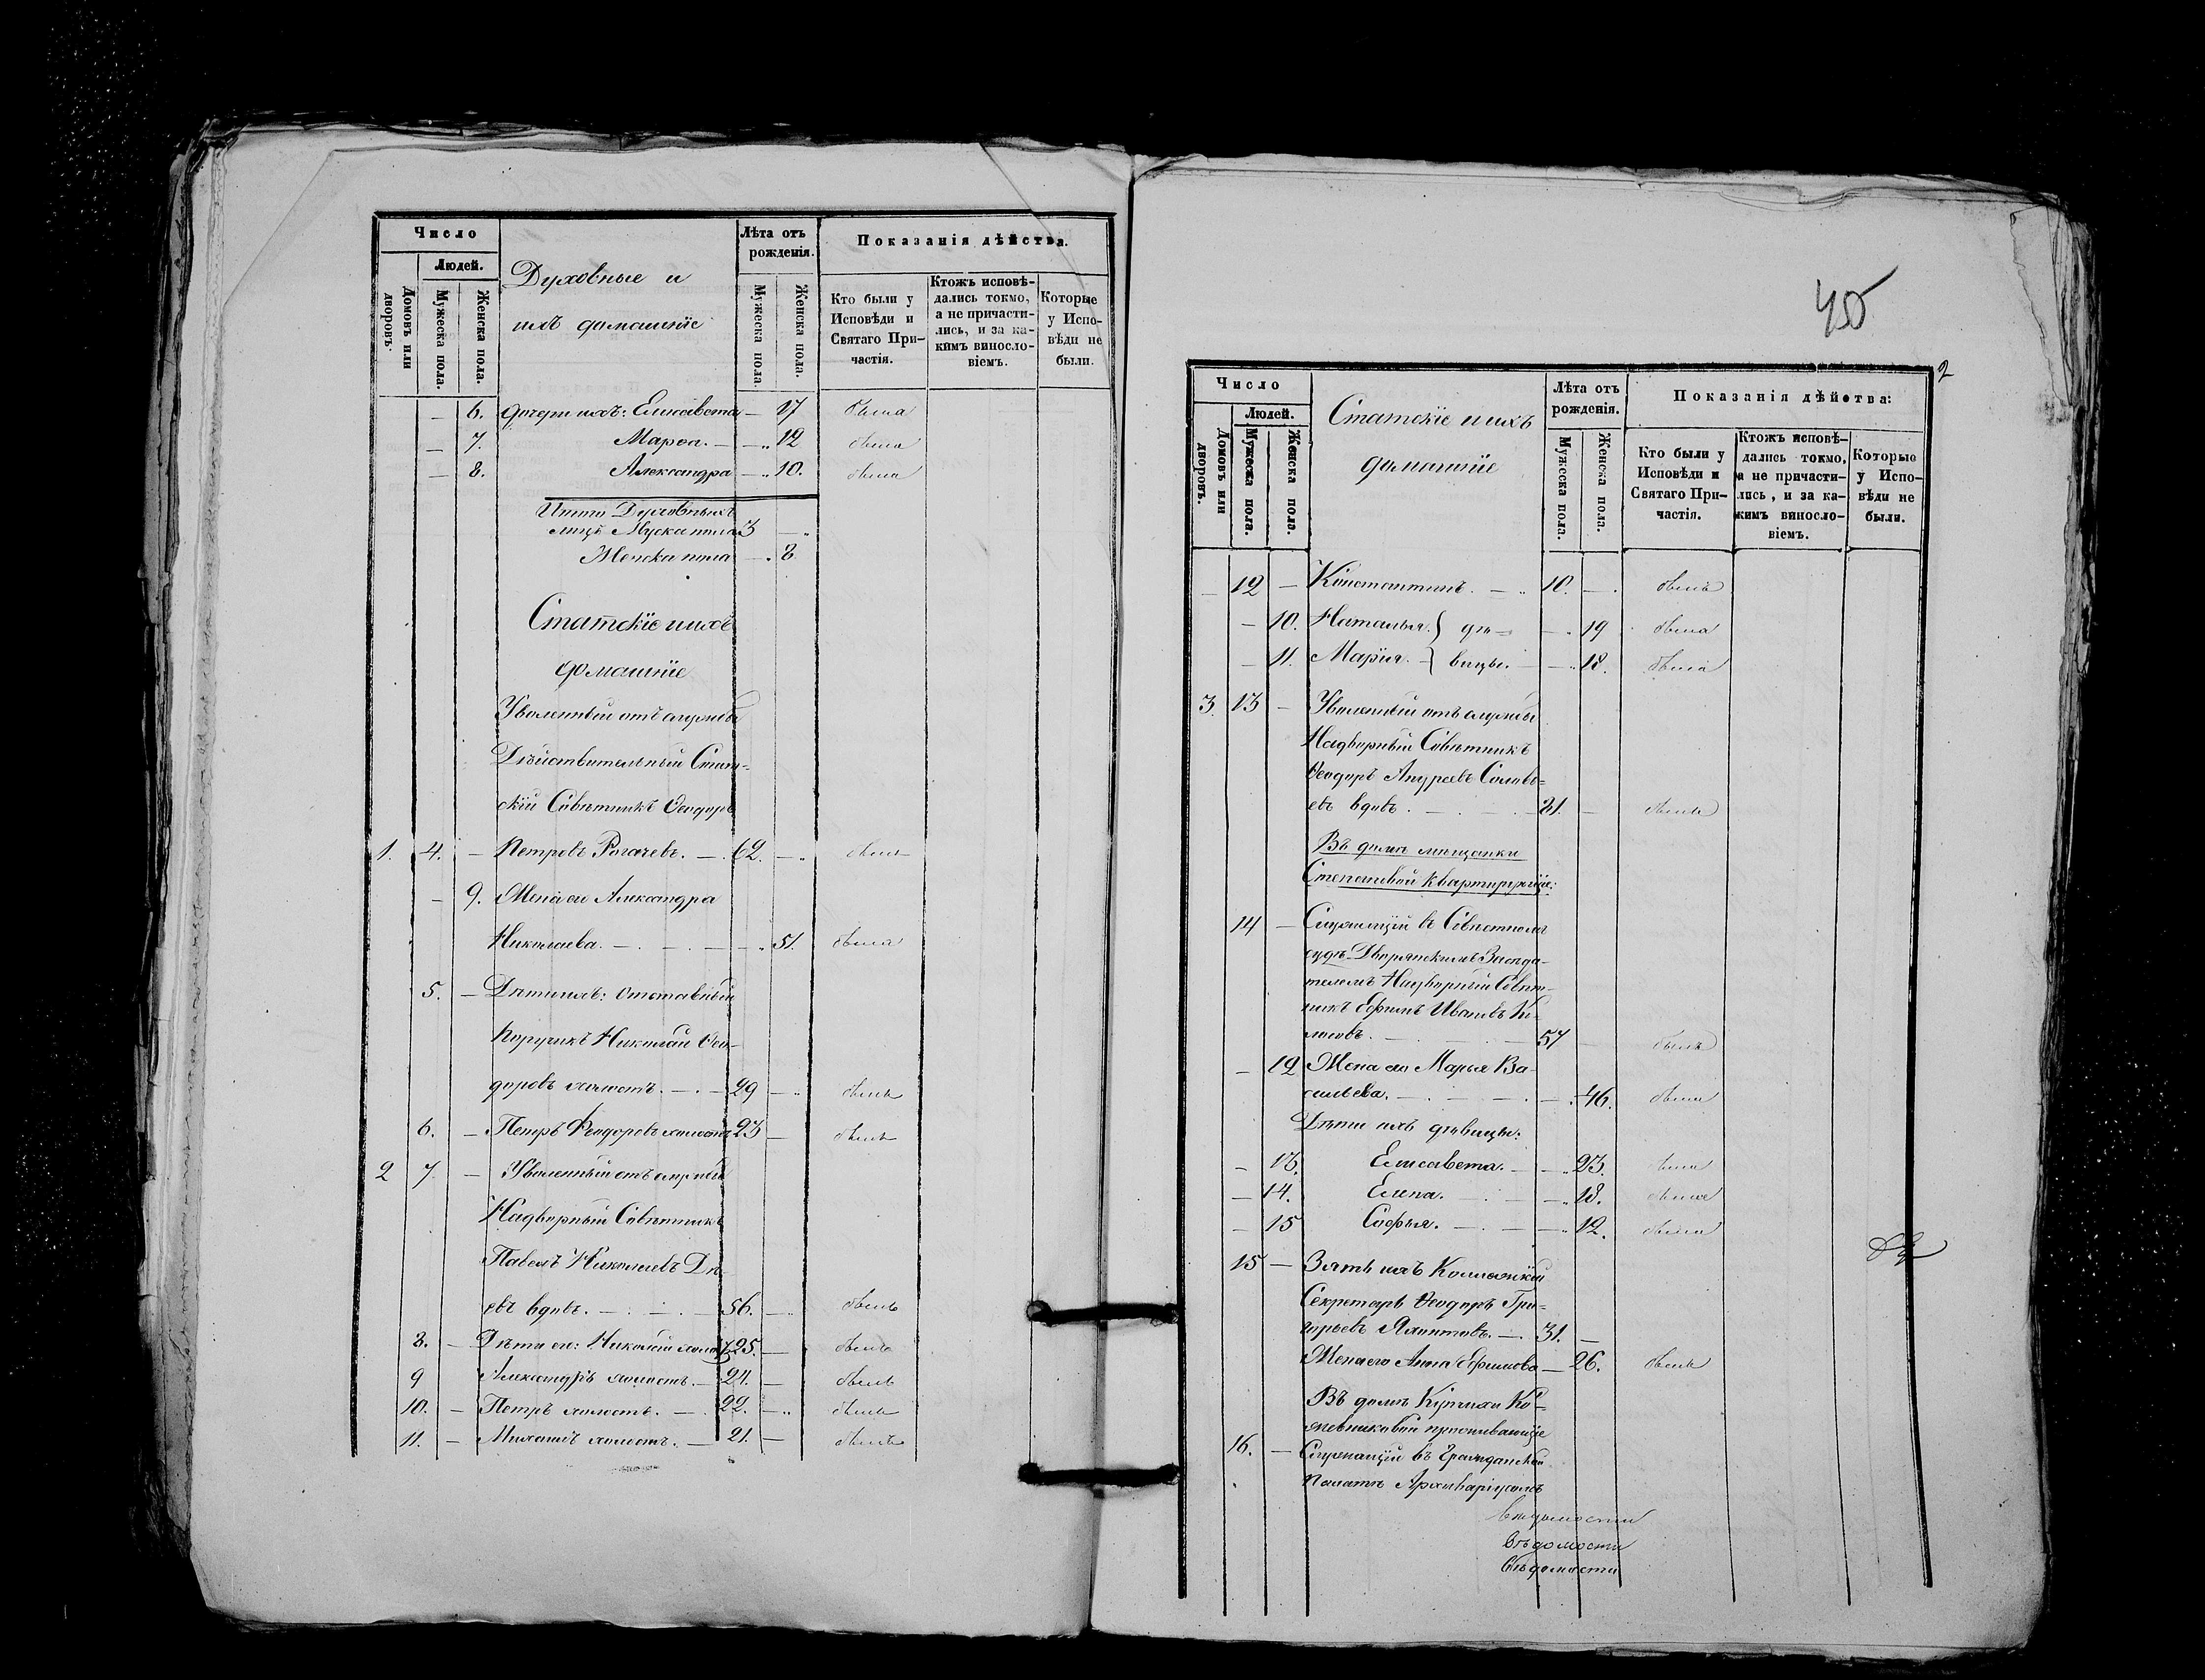 Число
Людей.
Домовъ или дворовъ.
Мужеска пола.
Женска пола.
Духовные и
ихъ домашніе
Лѣта отъ рожденія.
Мужеска пола.
Женска пола.
Показанія дѣйства.
Кто были у Исповѣди и Святаго При-частія.
Ктожъ исповѣ-дались токмо, а не причасти-лись, и за ка-кимъ винослo-віемъ.
Которые у Испо-вѣди не были.
— 6. дочери ихъ: Елисавета — 17 была
— 7. Марѳа. — 12 была
— 8. Александра — 10. была
Итого Духовныхъ
лицъ Мужска пола 3 —
Женска пола — 8
Статскіе и ихъ
домашніе
Уволенный отъ службы
Дѣйствительный Стат-
скій Совѣтникъ Ѳеодоръ
1. 4. — Петровъ Рогачевъ. — 62. — былъ
— 9. Жена его Александра
Николаева. — 51. была
5. — Дѣти ихъ: отставный
Поручикъ Николай Ѳео-
доровъ холостъ. — 29 — былъ
6. — Петръ Ѳеодоровъ холостъ 23 — былъ
2 7 — Уволенный отъ службы
Надворный Совѣтникъ
Павелъ Николаевъ
евъ вдовъ. — 56. — былъ
8. — Дѣти его: Николай холостъ 25. — былъ
9 Александръ холостъ. — 24. — былъ
10. — Петръ холостъ. — 22. — былъ
11. — Михаилъ холостъ. — 21. — былъ
45
2
Число
Людей.
Домовъ или дворовъ.
Мужеска пола.
Женска пола.
Статскіе и ихъ
домашніе
Лѣта отъ рожденія.
Мужеска пола.
Женска пола.
Показанія дѣйства:
Кто были у Исповѣди и Святаго При-частія.
Ктожъ исповѣ-дались токмо, а не причасти-лись, и за ка-кимъ винослo-віемъ.
Которые у Испо-вѣди не были.
— 12 — Константинъ. — 10. — былъ
— 10. Наталья } дѣ- — 19 была
— 11. Марія. } вицы. — 18. была
3. 13 — Уволенный отъ службы
Надворный Совѣтникъ
Ѳеодоръ Андреевъ Соловь-
евъ вдовъ. — 81. — былъ
Въ домѣ мѣщанки
Степановой квартирующіе:
14 — Служащій въ Совѣстномъ
судѣ Дворянскимъ Засѣда-
телемъ Надворный Совѣт-
никъ Ефимъ Ивановъ
57 — былъ
— 12 Жена его Марья Ва-
сильева. — 46. была
Дѣти ихъ дѣвицы:
— 13. Елисавета. — 23. была
— 14. Елена. — 18. была
— 15 Софья. — 12. была
15 — Зять ихъ Коллежскій
Секретарь Ѳеодоръ Гри-
горьевъ — 31. —
Жена его Анна Ефимова — 26. была
Въ домѣ Купчихи Ко-
жевниковой проживающіе
16. — Служащій въ Гражданской
Палатѣ Архиваріусомъ
вѣдомости
Вѣдомости
Вѣдомости